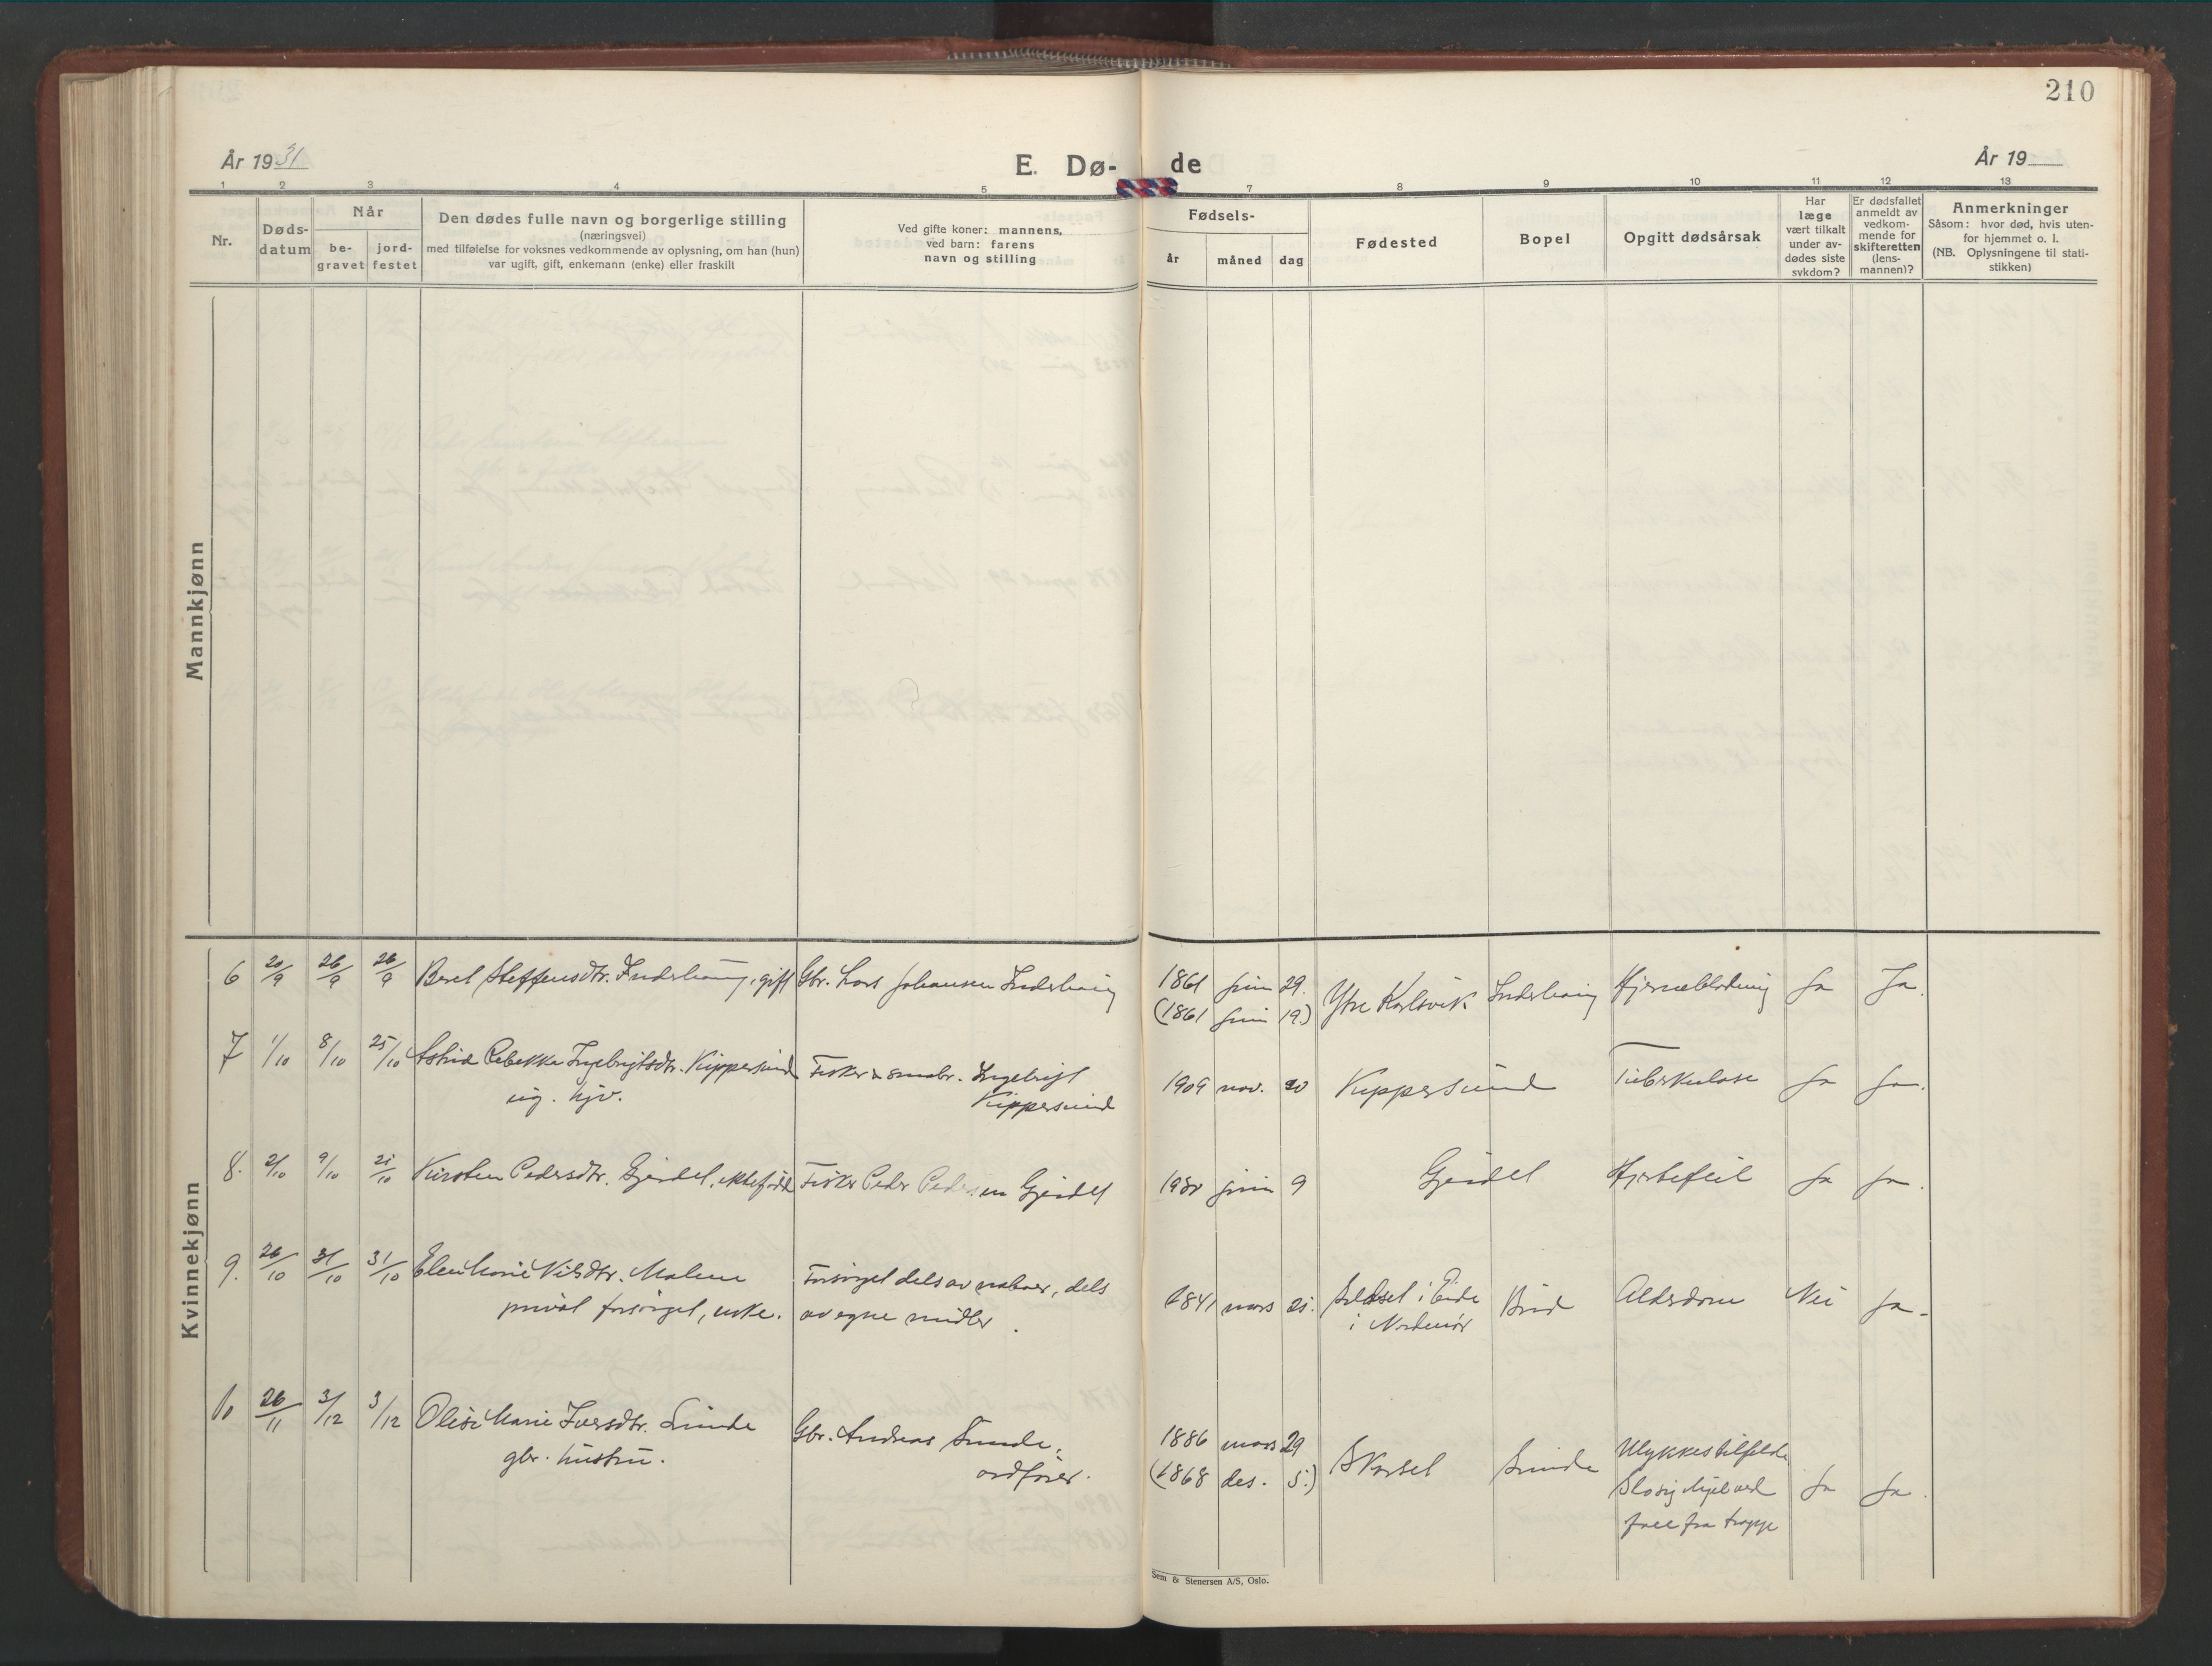 210
År 1931
E. Dø-
de
År 19
1 2 3 4 5
7 8 9 10 11 12 13
Nr.
Døds-
datum
Når
be-
gravet
jord-
festet
Den dødes fulle navn og borgerlige stilling
(næringsvei)
med tilføielse for voksnes vedkommende av oplysning, om han (hun)
var ugift, gift, enkemann (enke) eller fraskilt
Ved gifte koner: mannens,
ved barn: farens
navn og stilling
Fødsels-
år
måned
dag
Fødested
Bopel
Opgitt dødsårsak
Har
læge
vært tilkalt
under av-
dødes siste
sykdom?
Er dødsfallet
anmeldt av
vedkom-
mende for
skifteretten
(lens-
mannen)?
Anmerkninger
Såsom: hvor død, hvis uten-
for hjemmet o. l.
(NB. Oplysningene til stati-
stikken)
Mannkjønn
Kvinnekjønn
6 20/9 26/9 26/9 Beret Steffensdtr. Inderhaug, gift Gbr. Lars Johansen Inderhaug 1861 juni 29. Ytre Karlsvik Inderhaug Hjerneblødning Ja Ja.
(1861 juni 19.)
7 1/10 8/10 25/10 Astrid Rebekke Ingebrigtsdtr. Kippersund Fisker & småbr. Ingebrigt 1909 nov. 20 Kippersund Tuberkulose Ja Ja.
ug. hjv. Kippersund
8. 2/10 9/10 21/10 Kirsten Pedersdtr. Gjerdet, ektefødt Fisker Peder Pedersen Gjerdet juni 9 Gjerdet Hjertefeil Ja Ja.
9. 26/10 31/10 31/10 Elen Marie Nilsdtr. Malene Forsørget dels av naboer, dels 1841 mars Eide Alderdom Nei Ja.
privat forsørget, enke. av egne midler.
i Nordmør
10 26/11 3/12 3/12 Olise Marie Iversdtr. Sunde Gbr. Andreas Sunde, 1886 mars 29 Skarset Sunde Ulykkestilfelde
gbr. hustru. ordfører. (1868 des. 5.) Slo sig ihjel ved Ja Ja.
fall fra trapp
Sem & Stenersen A/S, Oslo.